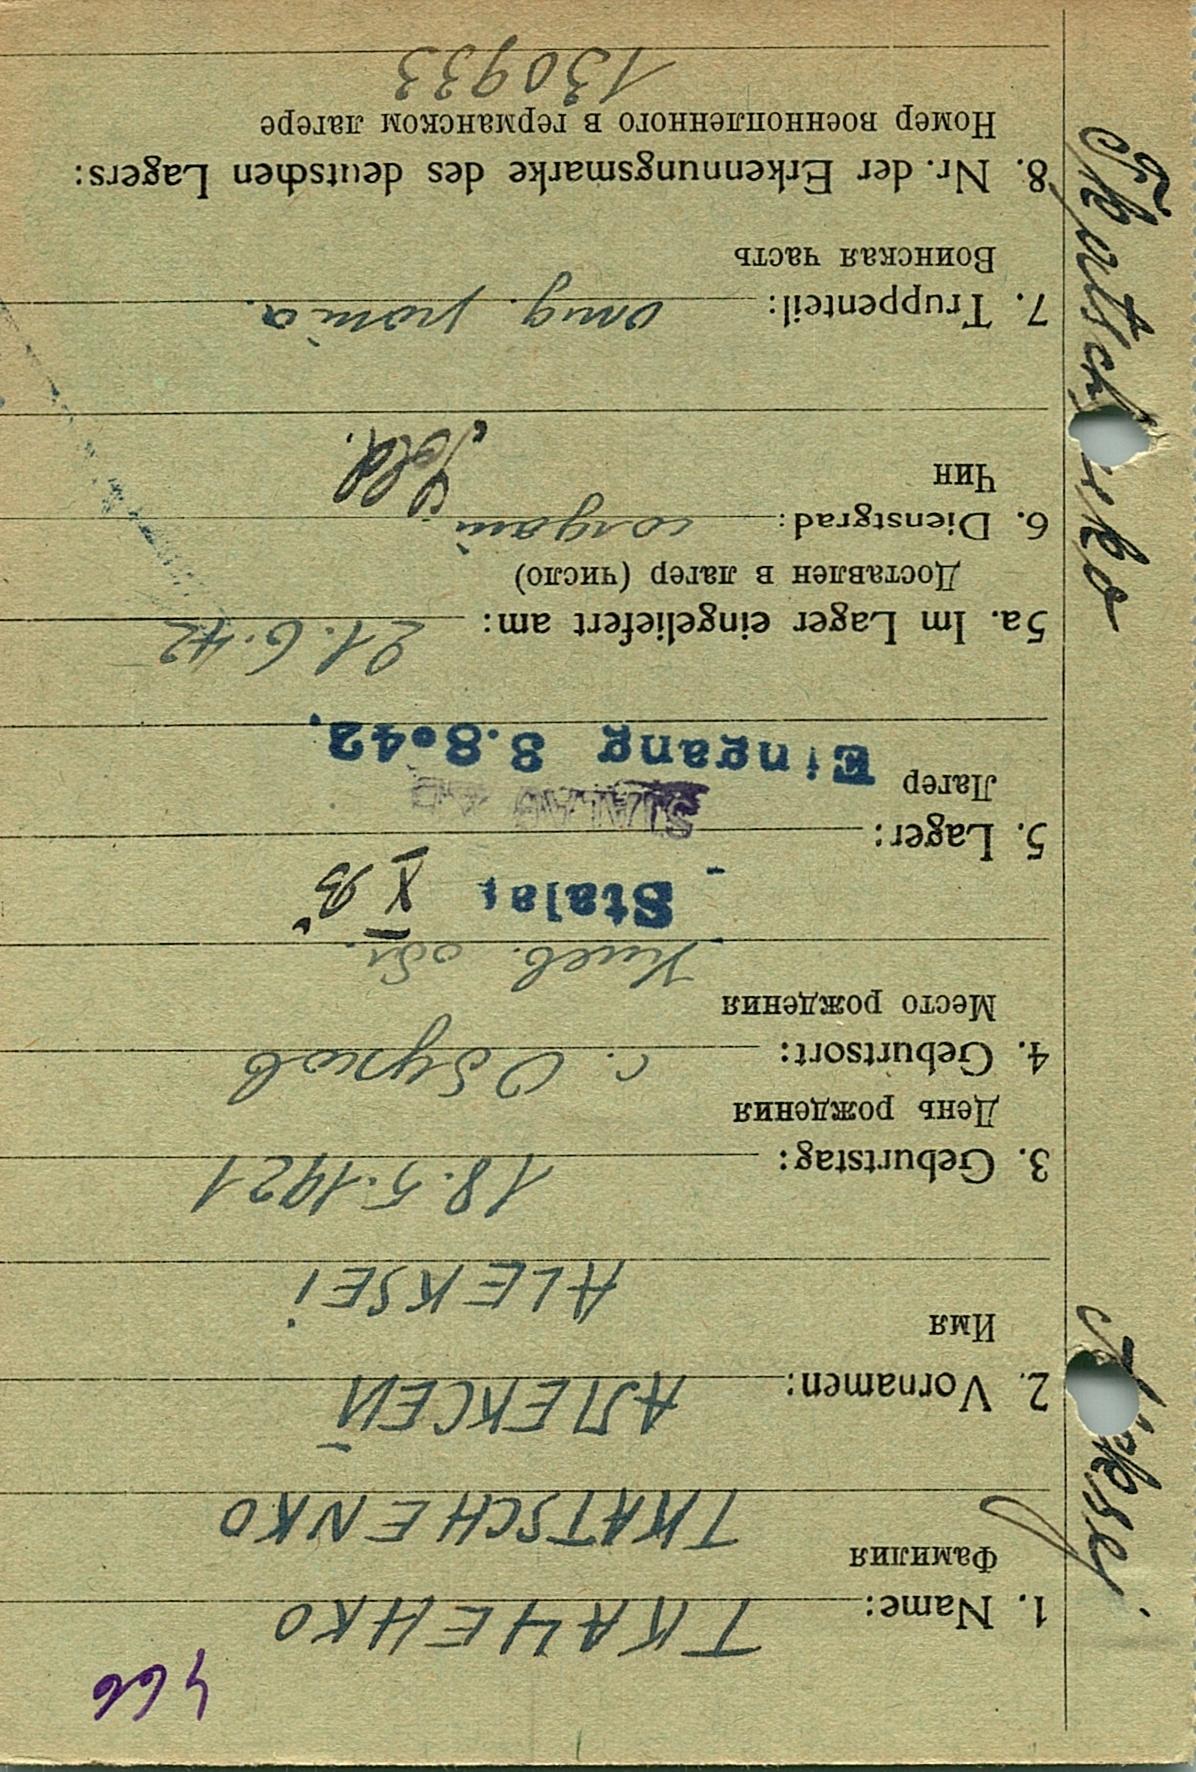 466
1. Name: ТКАЧЕНКО
Фамилия
TKATSCHENKO
2. Vornamen: АЛЕКСЕЙ
Имя
ALEKSEI
3. Geburtstag: 18.5.1921
День рождения
4. Geburtsort: с. Обухов
Место рождения
Киев. обл.
Stala X B
5. Lager:
STALAG
Лагер Eingang 8.8.42.
5a. Im Lager eingeliefert am: 21.6.42
Доставлен в лагер (число)
6. Dienstgrad: солдат Sold.
Чин
7. Truppenteil: отд. рота
Воинская часть
8. Nr. der Erkennungsmarke des deutschen Lagers:
Номер военнопленного в германском лагере
130933
Tkatschenko